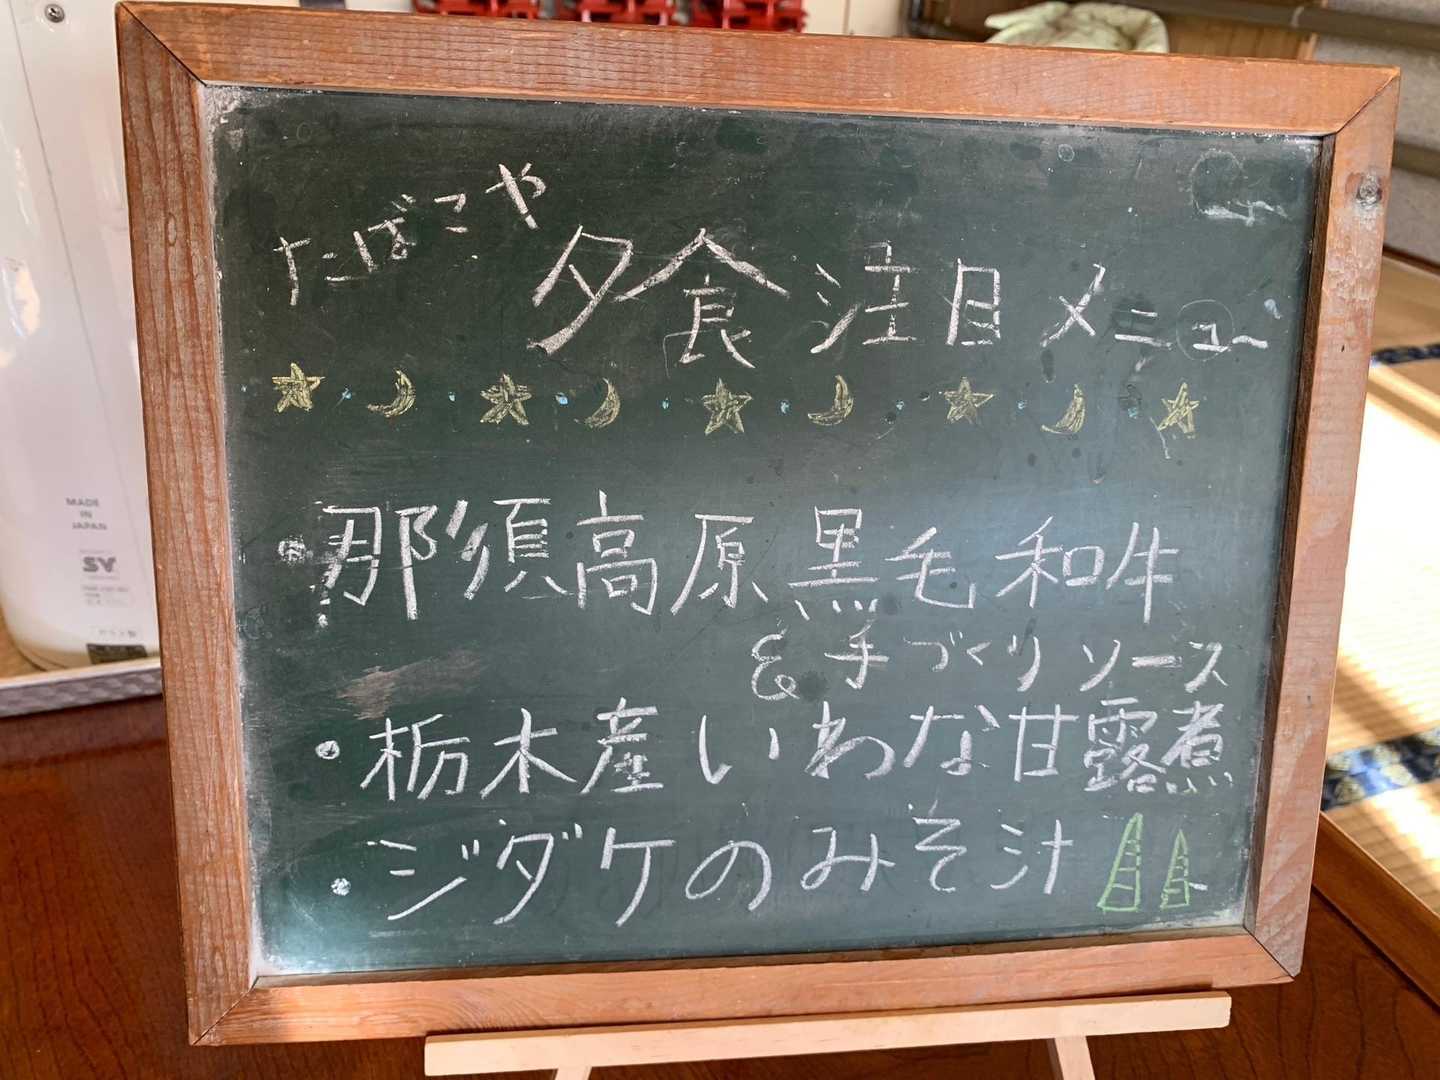 たばこや
夕食注目メニュー
・那須高原黒毛和牛
&手づくりソース
・栃木産いわな甘露煮
・ジダケのみそ汁
MADE
IN
JAPAN
SY